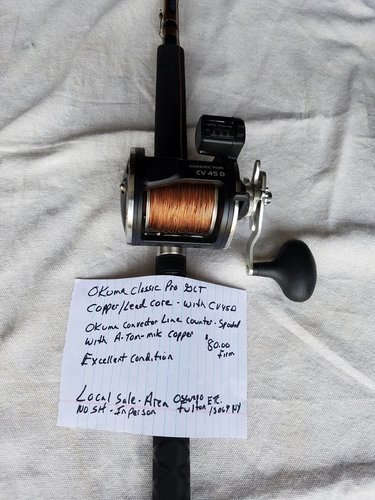 CONVECTOR
CV 45 D
Okuma Classic Pro GLT
Copper/Lead Core - with CV45D
Okuma Convector Line Counter - Spooled
with A-Tom-mik Copper $80.00
Excellent condition firm
Local Sale - Area Oswego
NO SH - In person Fulton 13069 NY